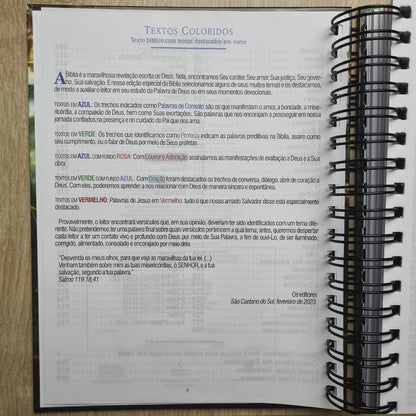 TEXTOS COLORIDOS
Texto bíblico com temas destacados em cores
A Bíblia é a maravilhosa revelação escrita de Deus. Nela, encontramos Seu caráter, Seu amor, Sua justiça, Seu gover-
no, Sua salvação. E nessa edição especial da Bíblia selecionamos alguns de seus muitos temas e os destacamos,
de modo a auxiliar o leitor em seu estudo da Palavra de Deus ou em seus momentos devocionais.
TEXTOS EM AZUL: Os trechos indicados como Palavras de Consolo são os que manifestam o amor, a bondade, a mise-
ricórdia, a compaixão de Deus, bem como Suas exortações. São palavras que nos encorajam a prosseguir em nossa
jornada confiados na presença e no cuidado do Pai que nos ama.
TEXTOS EM VERDE: Os trechos que identificamos como Profecia indicam as palavras preditivas na Bíblia, assim como
seu cumprimento, ou o falar de Deus por meio de Seus profetas.
TEXTOS EM AZUL COM FUNDO ROSA: Com Louvor e Adoração assinalamos as manifestações de exaltação a Deus e a Sua
obra.
TEXTOS EM VERDE COM FUNDO AZUL: Com Oração foram destacados os trechos de conversa, diálogo, abrir de coração a
Deus. Com eles, poderemos aprender a nos relacionar com Deus de maneira sincera e espontânea.
TEXTOS EM VERMELHO: Palavras de Jesus em Vermelho: tudo o que nosso amado Salvador disse está especialmente
destacado.
Provavelmente, o leitor encontrará versículos que, em sua opinião, deveriam ter sido identificados com um tema dife-
rente. Não pretendemos ter uma palavra final sobre quais versículos pertencem a qual tema; antes, queremos despertar
cada leitor a ter um contato vivo e profundo com Deus por meio de Sua Palavra, a fim de ouvi-Lo, de ser iluminado,
corrigido, alimentado, consolado e encorajado por meio dela.
"Desvenda os meus olhos, para que veja as maravilhas da tua lei. (...)
Venham também sobre mim as tuas misericórdias, ó SENHOR, e a tua
salvação, segundo a tua palavra."
Salmo 119.18;41
Os editores
São Caetano do Sul, fevereiro de 2023.